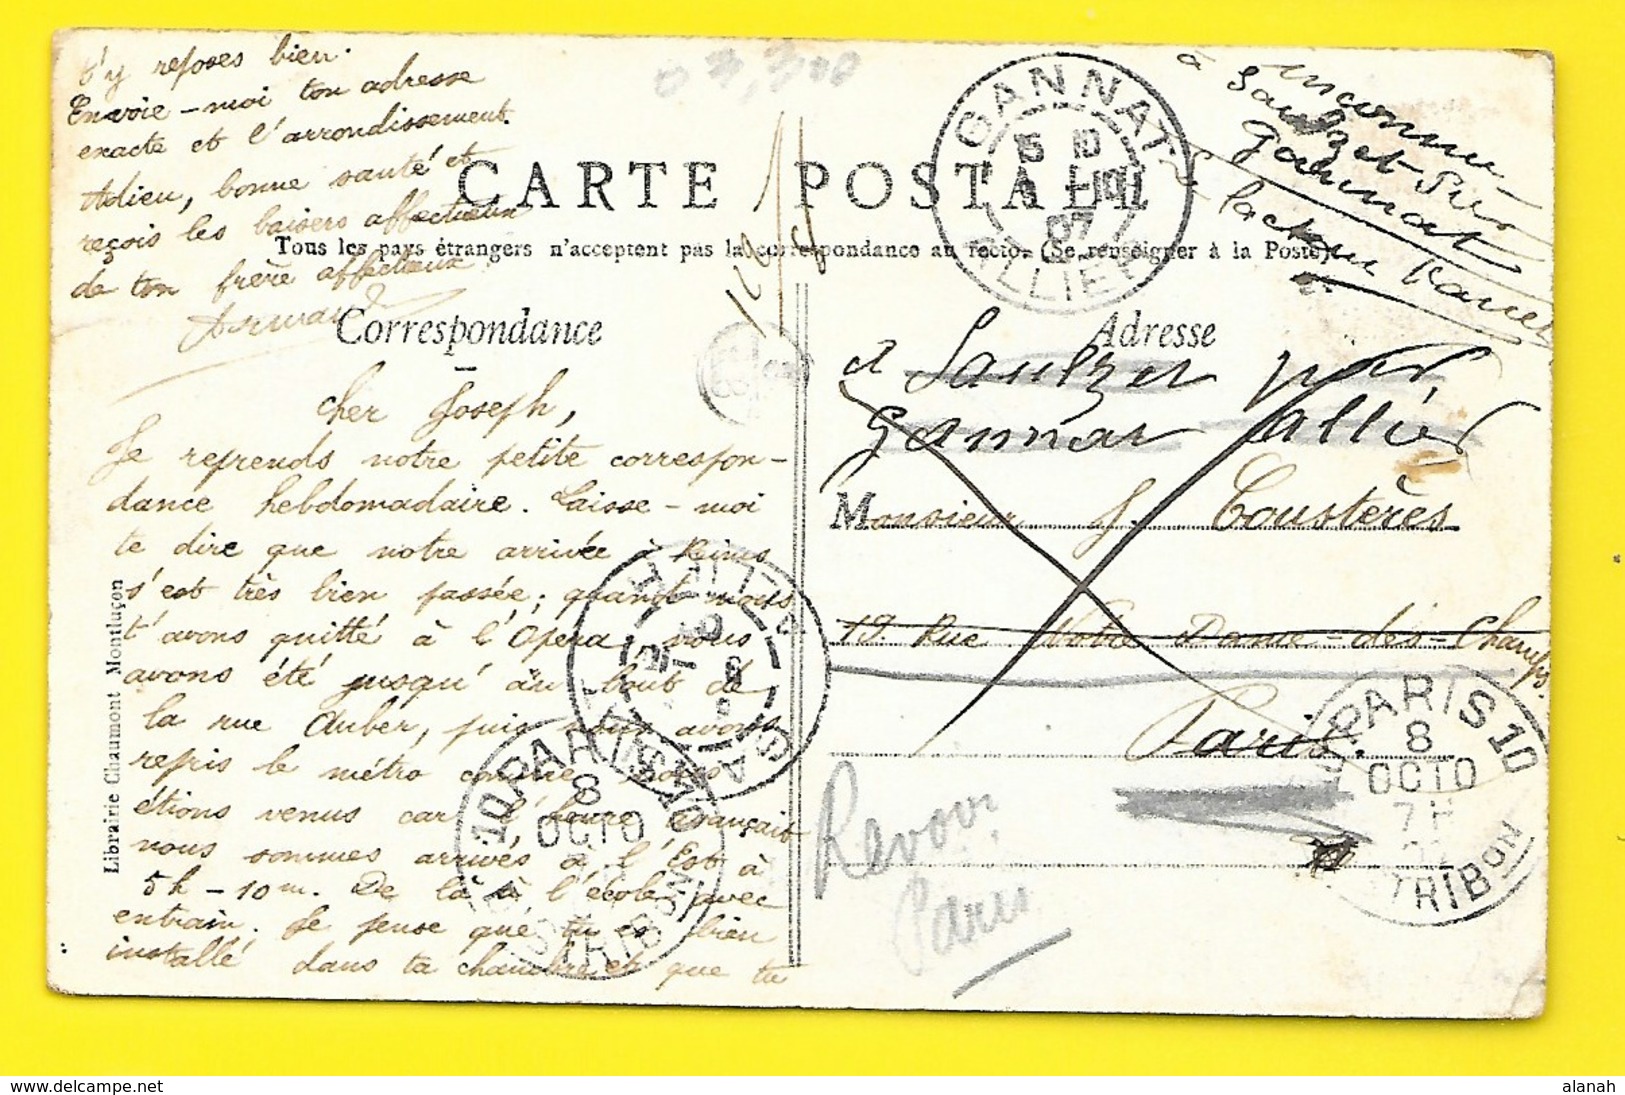 CARTE POSTALE
Tous les pays étrangers n'acceptent pas la correspondance au recto. (Se renseigner à la Poste)
Correspondance
Adresse
cher Joseph,
Je reprends notre petite correspon-
dance hebdomadaire. Laisse-moi
te dire que notre arrivée à Reims
s'est très bien passée; quand nous
t'avons quitté à l'Opéra, nous
avons été jusqu'au bout de
la rue Auber, puis nous avons
repris le métro comme nous
étions venus car à l'heure française
nous sommes arrivés à l'Est à
5h-10m. De là à l'école avec
entrain. Je pense que tu es bien
installé dans ta chambre et que tu
t'y reposes bien.
Envoie-moi ton adresse
exacte et l'arrondissement.
Adieu, bonne santé et
reçois les baisers affectueux
de ton frère affectueux
Armand
à Saulzet par
Gannat Allier
Monsieur J. Coustères
19. Rue Notre Dame-des-Champs
Paris.
Revoir
Paris
inconnu
à Saulzet-près
Gannat
le facteur
GANNAT
ALLIER
15 10
07
PARIS 10
8
OCTO
7H
DISTRIBON
PARIS 10
8
OCTO
DISTRIBON
GANNAT
ALLIER
Librairie Chaumont Montluçon
https://www.delcampe.net
alanah